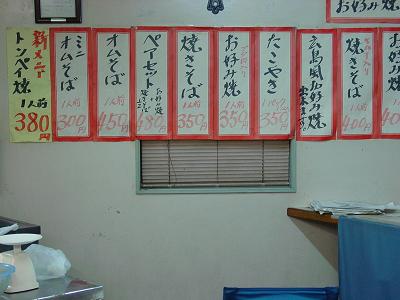 お好み焼
新メニュー
トンペイ焼
1人前
380円
ミニ
オムそば
1人前
300円
オムそば
1人前
450円
ペアセット
お好み焼
焼きそば
480円
焼きそば
1人前
350円
お好み焼
1人前
350円
たこやき
350円
広島風お好み焼
出来ます。
焼きそば
1人前
400円
お好み焼